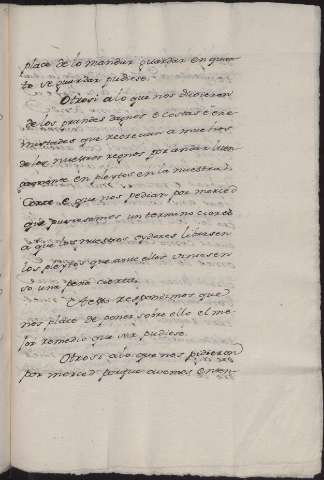 place de lo mandar guardar en quan
to se guardar pudiese.
Otrosi a lo que nos dixieron
de los grandes dagnos e costas e ene
mistades que recrecian a muchos
de los nuestros regnos por andar luen
gamente en pleytos en la nuestra
Corte, e que nos pedian por merced
que pusiesemos un termino cierto
a que los nuestros oydores librasen
los pleytos que ante ellos viniesen
so una pena cierta.
A esto respondemos que
nos place de poner sobre ello el me
jor remedio que ser pudiese.
Otrosi a lo que nos pidieron
por merced porque avemos enten